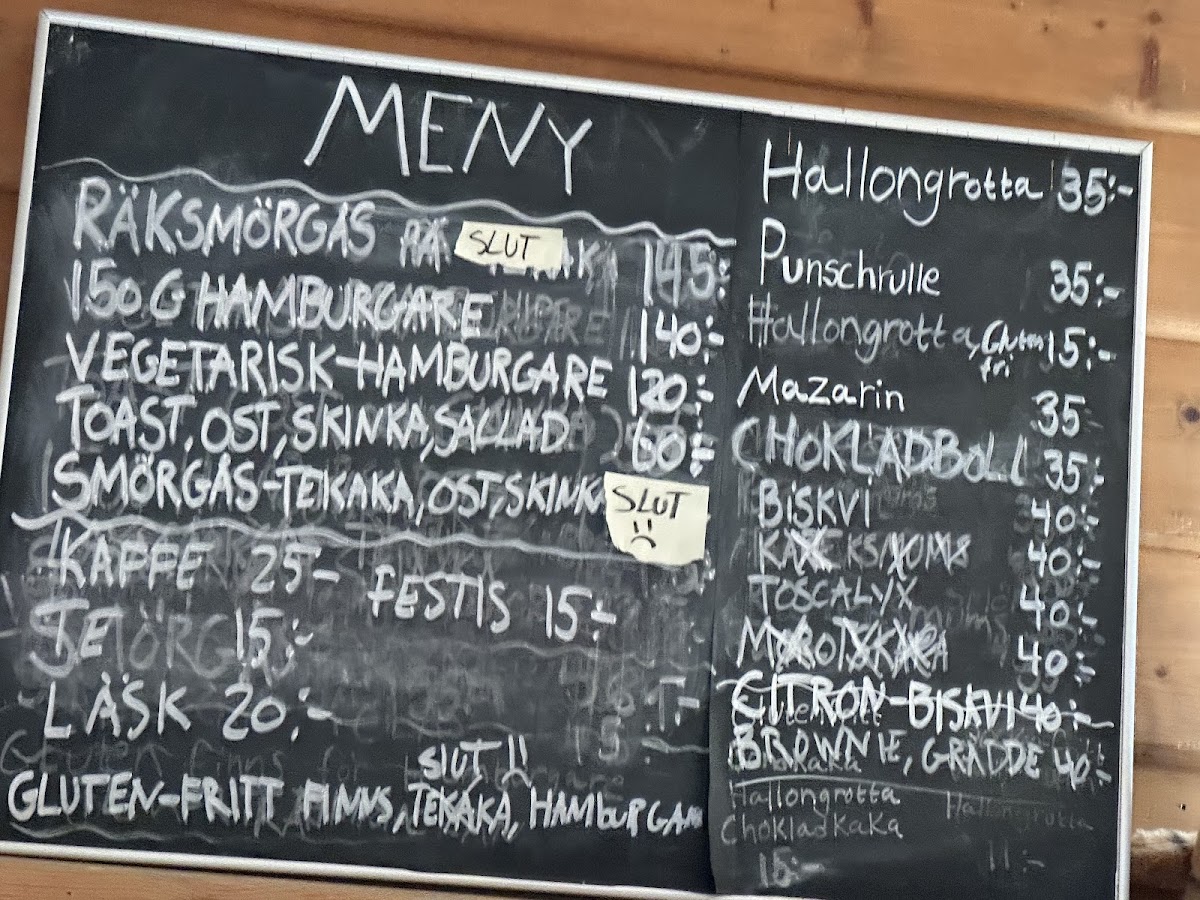 MENY
RÄKSMÖRGÅS PÅ SLUT 145:-
150G HAMBURGARE 140:-
VEGETARISK-HAMBURGARE 120:-
TOAST, OST, SKINKA, SALLAD 60:-
SMÖRGÅS-TEKAKA, OST, SKINKA SLUT
KAFFE 25:- FESTIS 15:-
TE 15:-
LÄSK 20:-
SLUT
GLUTEN-FRITT FINNS, TEKAKA, HAMBURGARE
Hallongrotta 35:-
Punschrulle 35:-
Hallongrotta, Gluten fri 15:-
Mazarin 35
CHOKLADBOLL 35:-
BISKVI 40:-
40:-
TOSCALYX 40:-
MOROTSKAKA 40:-
CITRON-BISKVI 40:-
BROWNIE, GRÄDDE 40:-
Hallongrotta Hallongrotta
Chokladkaka
15:- 11:-